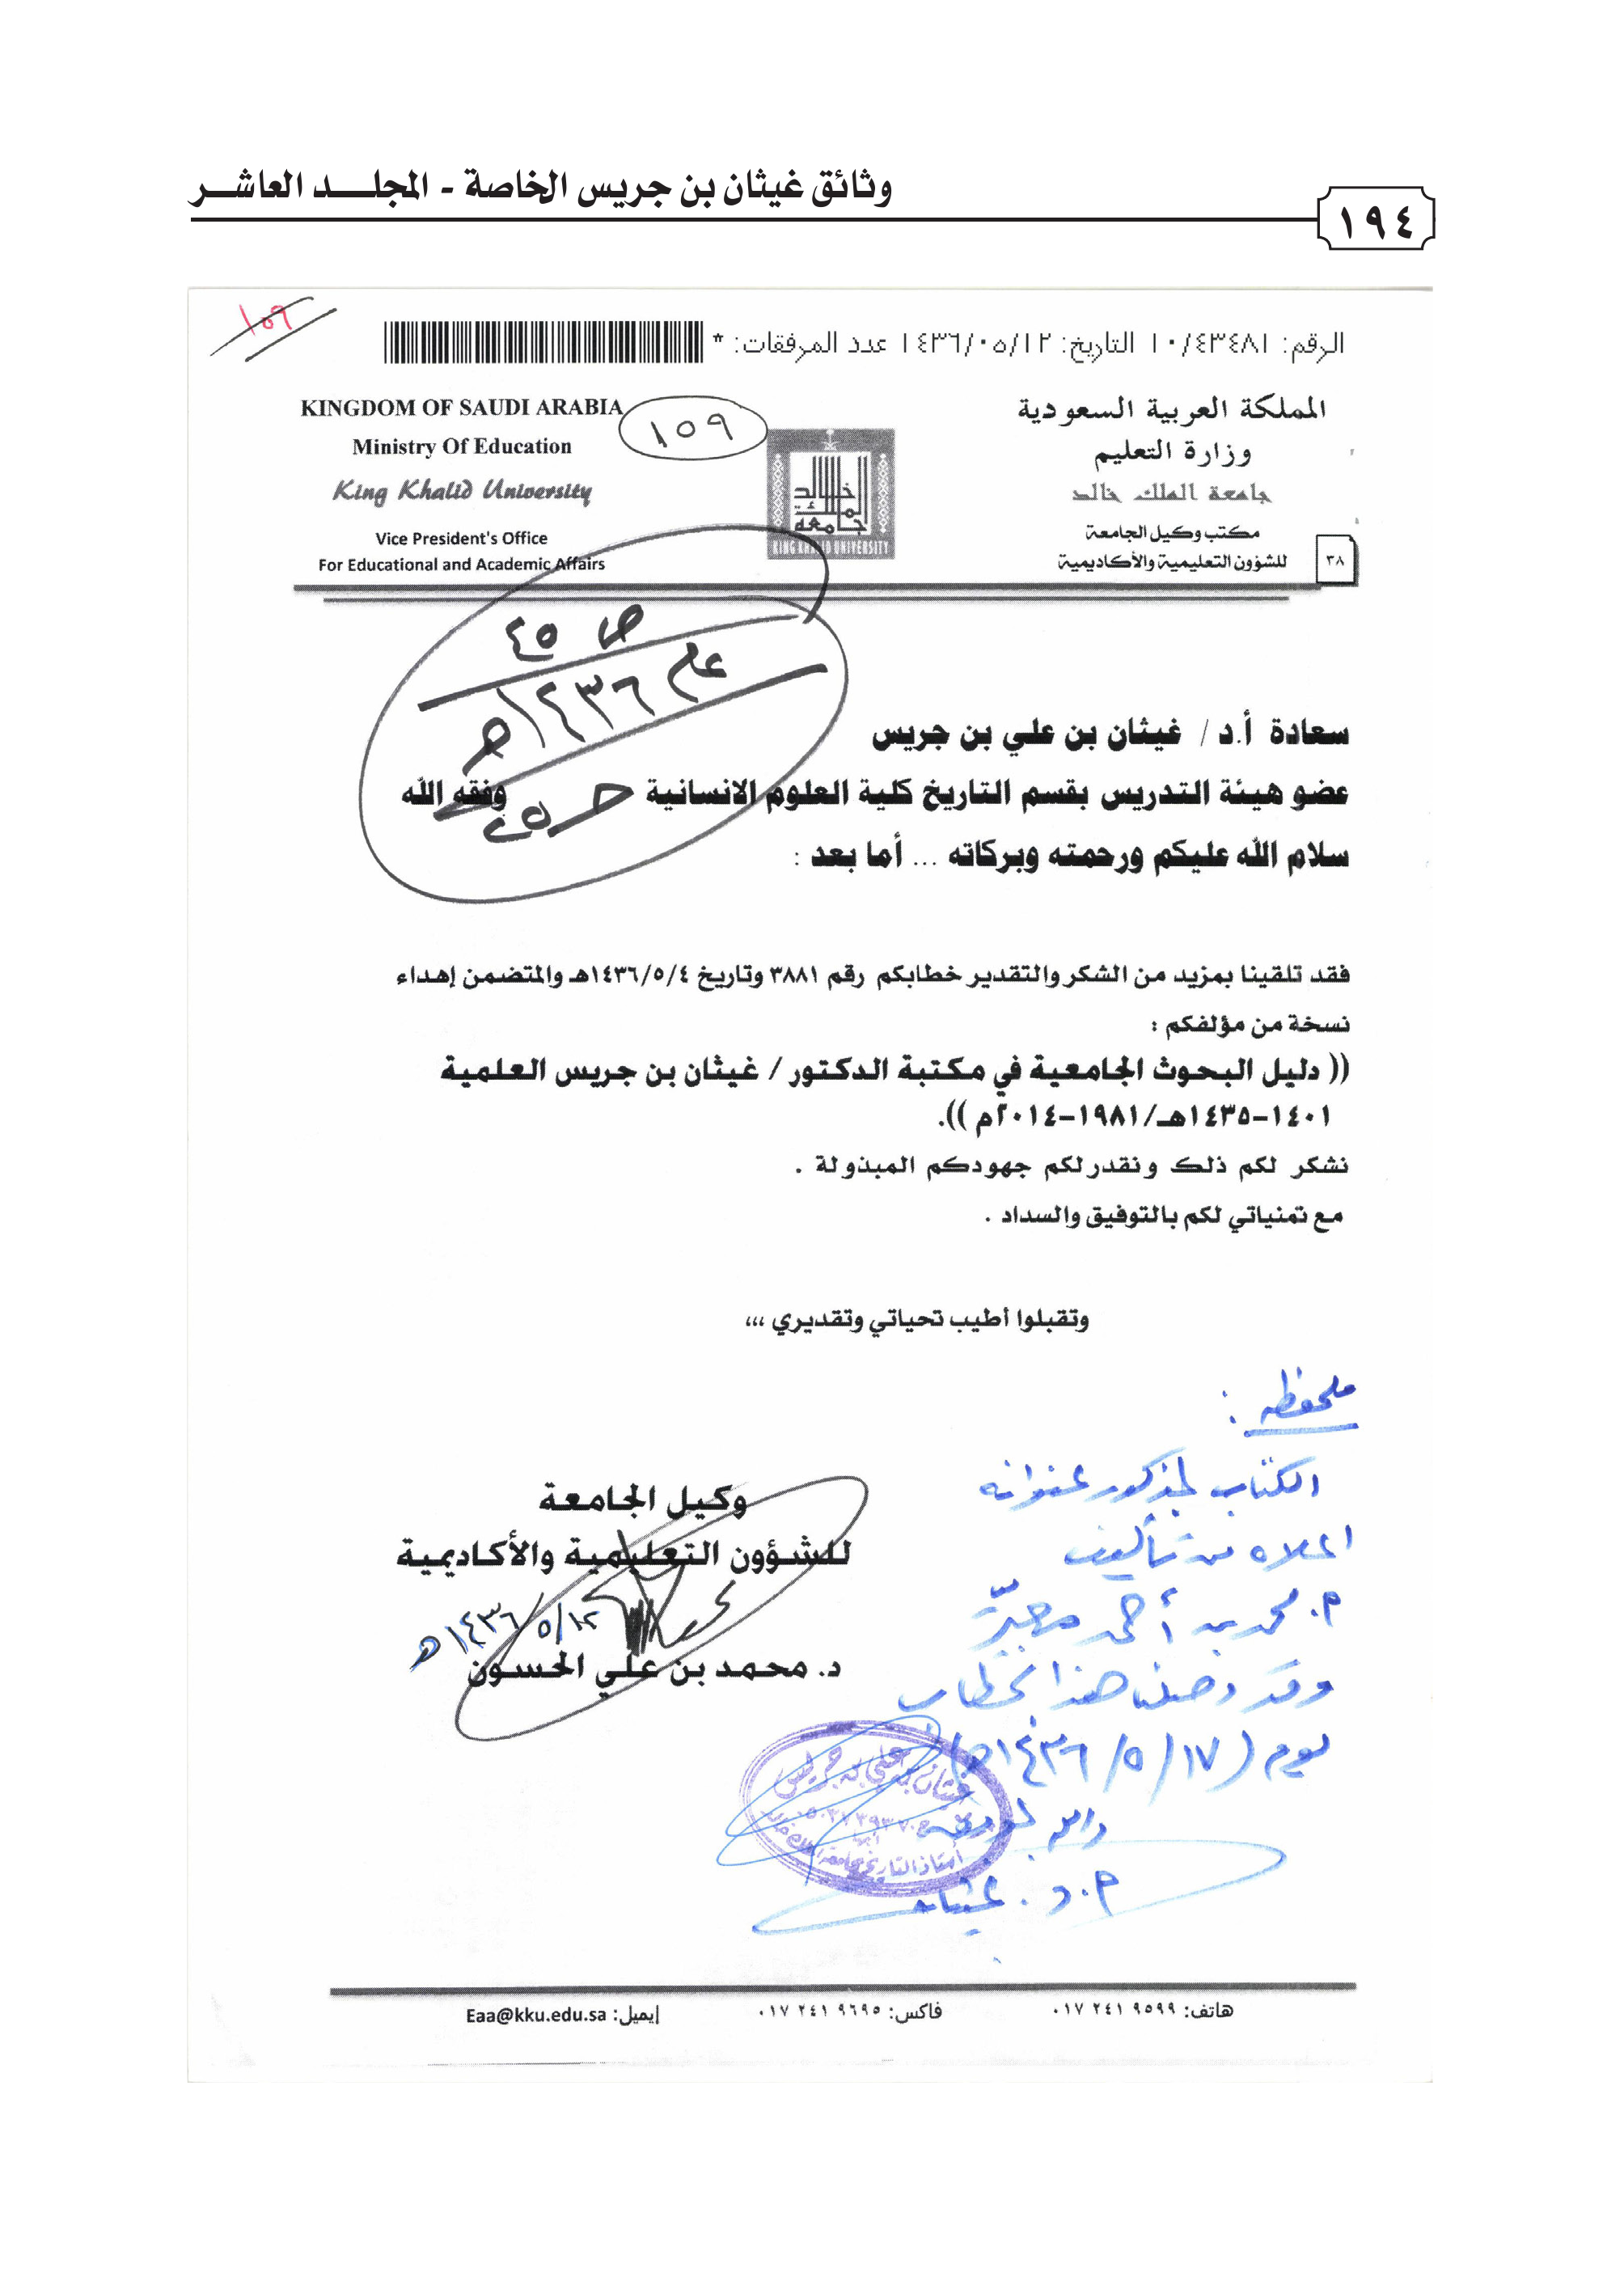 وثائق غيثان بن جريس الخاصة - المجلد العاشر
١٩٤
١٥٩
الرقم: ١٠/٤٣٤٨١ التاريخ: ١٤٣٦/٠٥/١٢ عدد المرفقات: *
المملكة العربية السعودية
وزارة التعليم
جامعة الملك خالد
مكتب وكيل الجامعة
للشؤون التعليمية والأكاديمية
٣٨
KINGDOM OF SAUDI ARABIA
Ministry Of Education
King Khalid University
Vice President's Office
For Educational and Academic Affairs
١٥٩
جامعة الملك خالد
KING KHALID UNIVERSITY
ص ٤٥
عام ١٤٣٦هـ
سعادة أ.د / غيثان بن علي بن جريس
عضو هيئة التدريس بقسم التاريخ كلية العلوم الانسانية وفقه الله
سلام الله عليكم ورحمته وبركاته ... أما بعد :
فقد تلقينا بمزيد من الشكر والتقدير خطابكم رقم ٣٨٨١ وتاريخ ١٤٣٦/٥/٤هـ والمتضمن إهداء
نسخة من مؤلفكم :
(( دليل البحوث الجامعية في مكتبة الدكتور / غيثان بن جريس العلمية
١٤٠١-١٤٣٥هـ/١٩٨١-٢٠١٤م )).
نشكر لكم ذلك ونقدر لكم جهودكم المبذولة .
مع تمنياتي لكم بالتوفيق والسداد .
وتقبلوا أطيب تحياتي وتقديري ،،،
وكيل الجامعة
للشؤون التعليمية والأكاديمية
١٤٣٦/٥/١٢هـ
د. محمد بن علي الحسون
ملحوظة :
الكتاب المذكور عنوانه
اعلاه من تأليف
م. محمد بن أحمد معبر
وقد وصلنا هذا الخطاب
يوم (١٧/٥/١٤٣٦هـ)
والله الموفق
أ.د. غيثان
غيثان بن علي بن جريس
أبها
أستاذ التاريخ بجامعة الملك خالد
هاتف: ٠١٧ ٢٤١ ٩٥٩٩ فاكس: ٠١٧ ٢٤١ ٩٦٩٥ إيميل: Eaa@kku.edu.sa